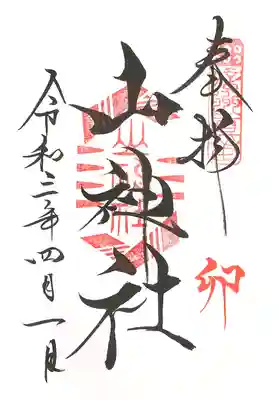 奉拝
卯
山神社
令和二年四月一日